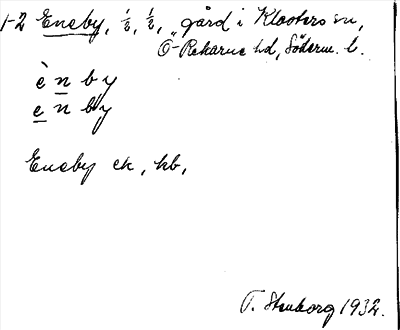 1-2 Eneby, 1/2, 1/2, gård i Klosters sn,
Ö-Rekarne hd, Söderm. l.
è n b y
e n b y
Eneby ek, kb,
T. Stenborg 1932.